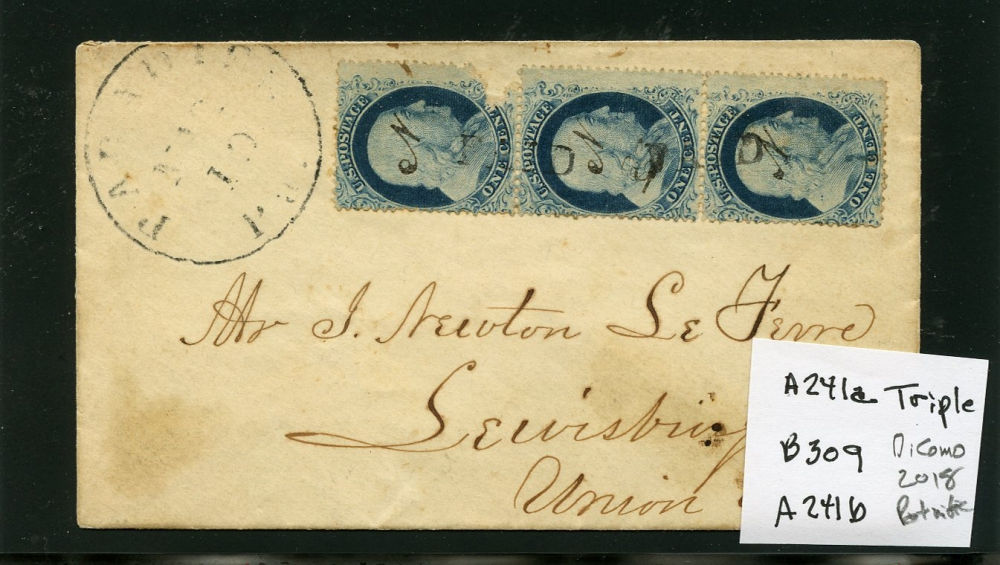 PARADISE PA
10
U.S. POSTAGE
ONE CENT
N
U.S. POSTAGE
ONE CENT
N
U.S. POSTAGE
ONE CENT
N
PAID
PAID
Mr J. Newton Le Fevre
Lewisburg
Union
A241a Triple
B309 DiComo
2018
A241b